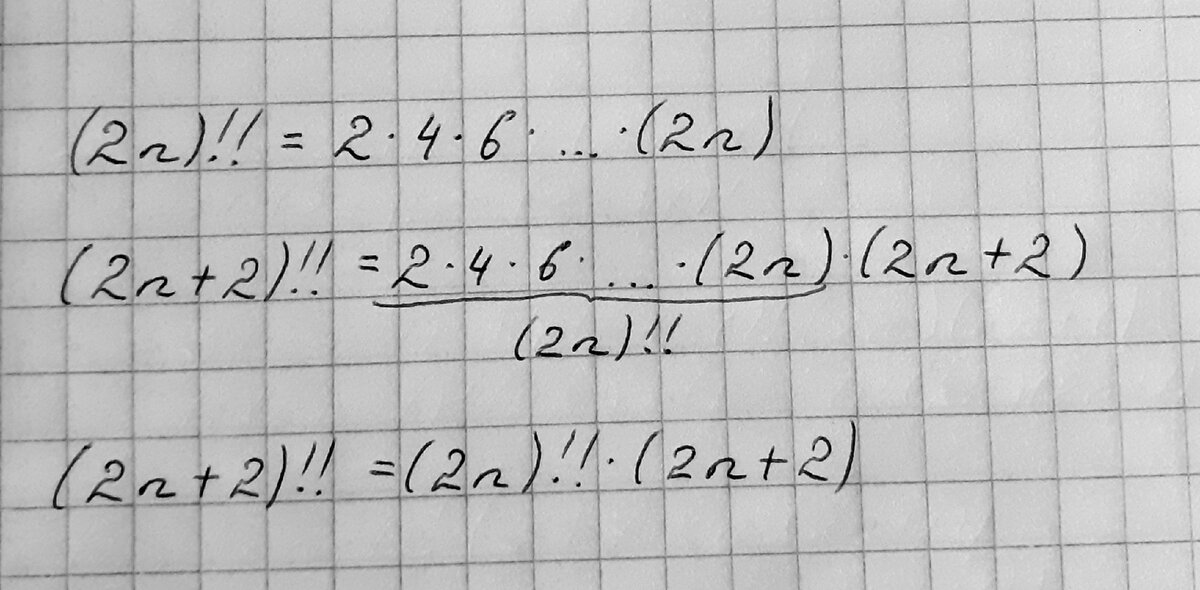 (2n)!! = 2·4·6· ... ·(2n)
(2n+2)!! = 2·4·6· ... ·(2n)·(2n+2)
(2n)!!
(2n+2)!! = (2n)!!·(2n+2)